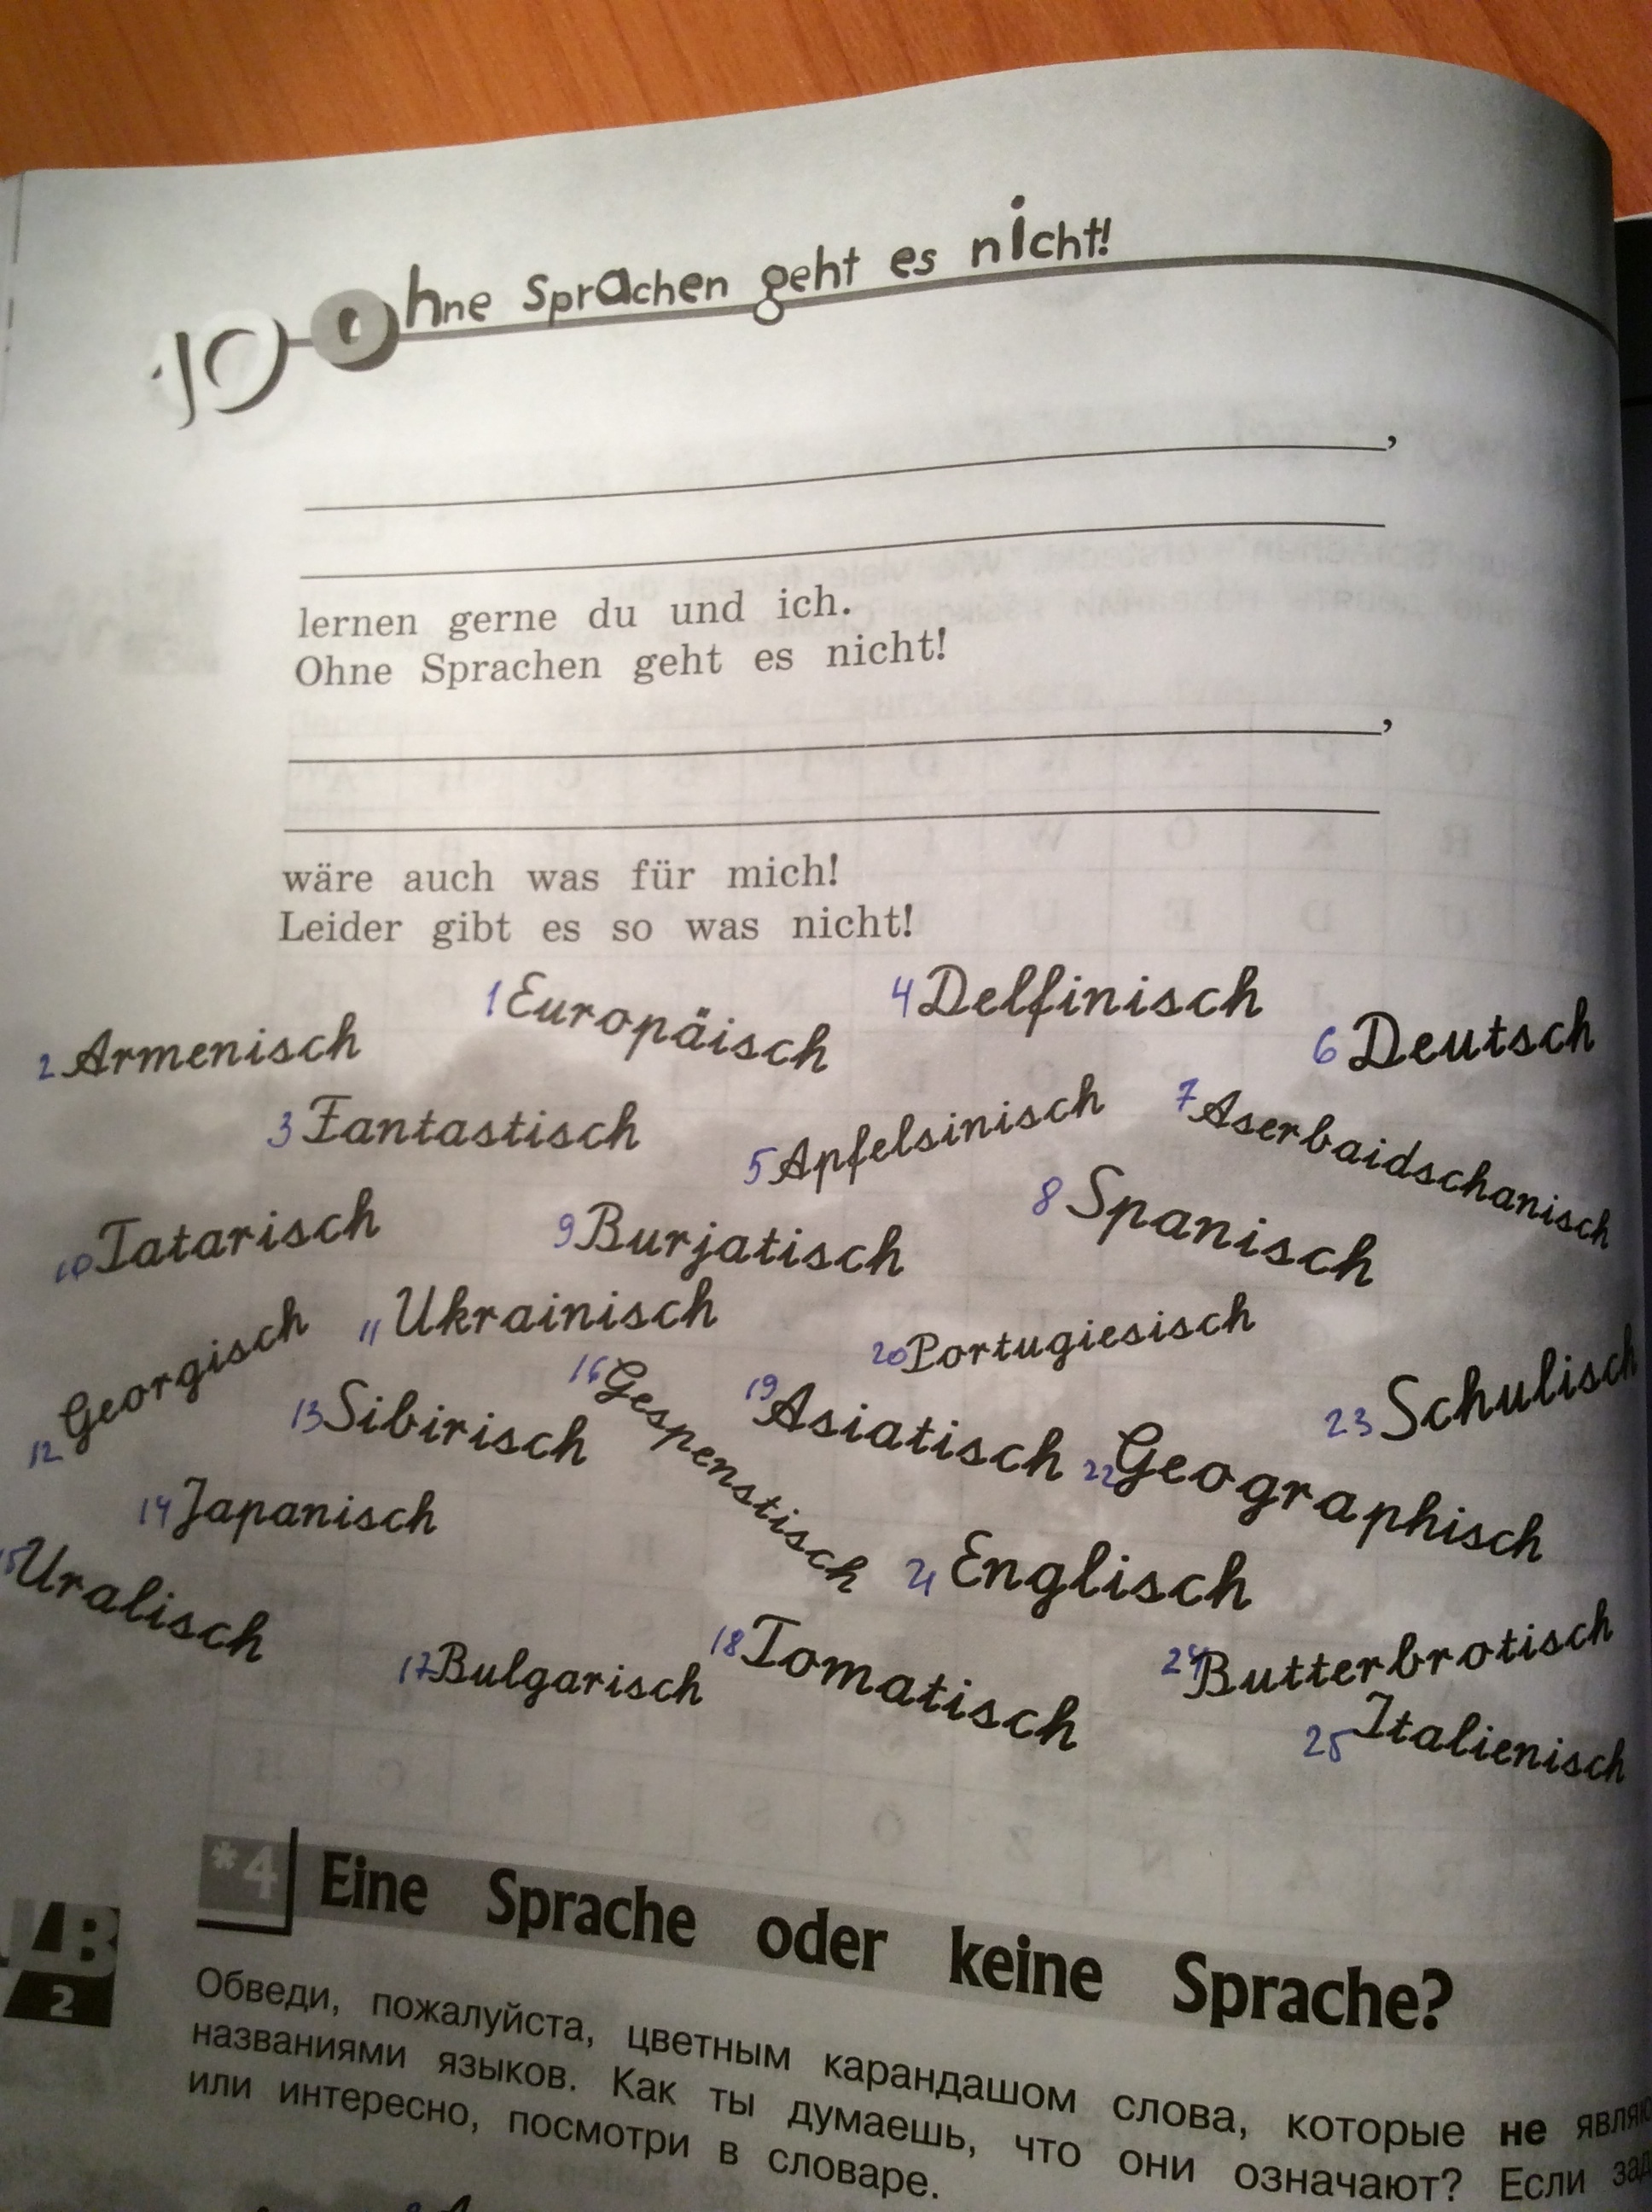 10 Ohne Sprachen geht es nicht!
,
lernen gerne du und ich.
Ohne Sprachen geht es nicht!
,
wäre auch was für mich!
Leider gibt es so was nicht!
1 Europäisch
4 Delfinisch
2 Armenisch
6 Deutsch
3 Fantastisch
5 Apfelsinisch
7 Aserbaidschanisch
8 Spanisch
10 Tatarisch
9 Burjatisch
11 Ukrainisch
20 Portugiesisch
12 Georgisch
13 Sibirisch
16 Gespenstisch
19 Asiatisch
22 Geographisch
23 Schulisch
14 Japanisch
15 Uralisch
21 Englisch
17 Bulgarisch
18 Tomatisch
24 Butterbrotisch
25 Italienisch
*4 Eine Sprache oder keine Sprache?
AB
2
Обведи, пожалуйста, цветным карандашом слова, которые не
названиями языков. Как ты думаешь, что они означают? Если
или интересно, посмотри в словаре.